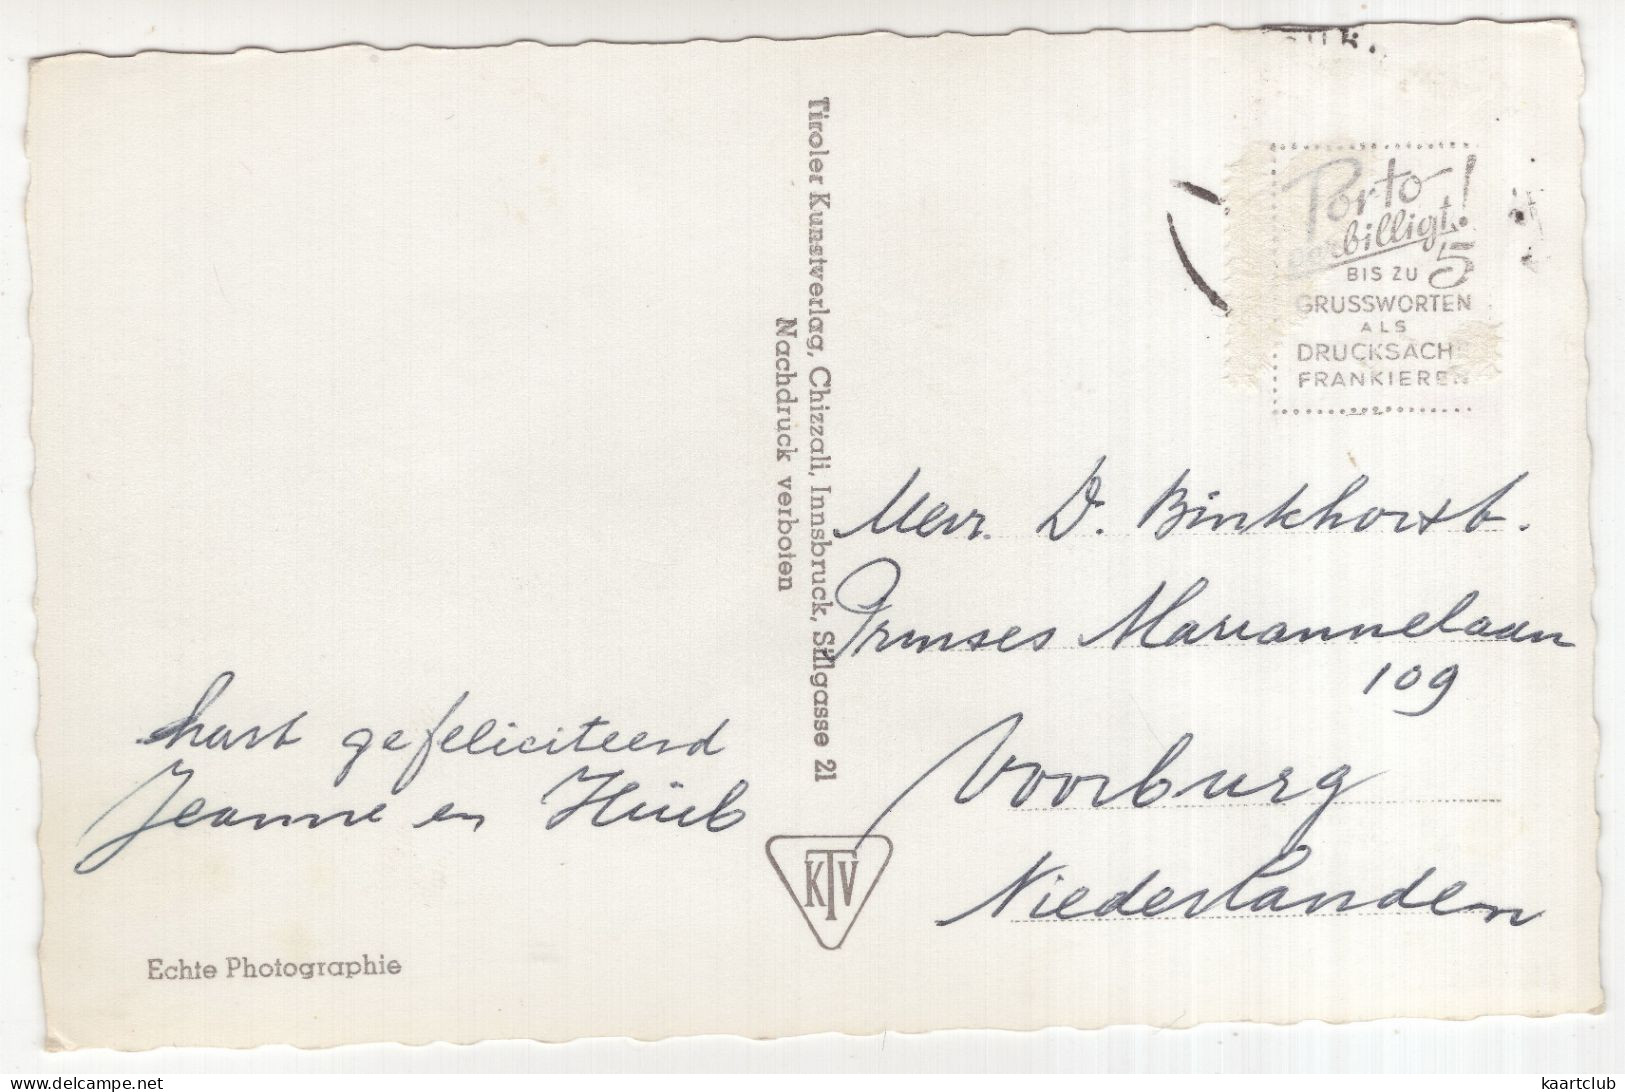 Porto
verbilligt!
BIS ZU 5
GRUSSWORTEN
ALS
DRUCKSACHE
FRANKIEREN
Tiroler Kunstverlag, Chizzali, Innsbruck, Sillgasse 21
Nachdruck verboten
Mevr. D. Binkhorst.
Prinses Mariannelaan
109
Voorburg
Niederlanden
hart gefeliciteerd
Jeanne en Huub
KTV
Echte Photographie
www.delcampe.net
kaartclub